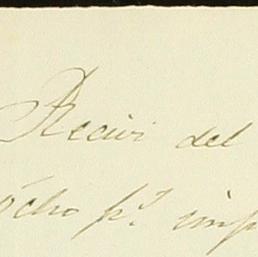 Recivi del
ócho pr. imp